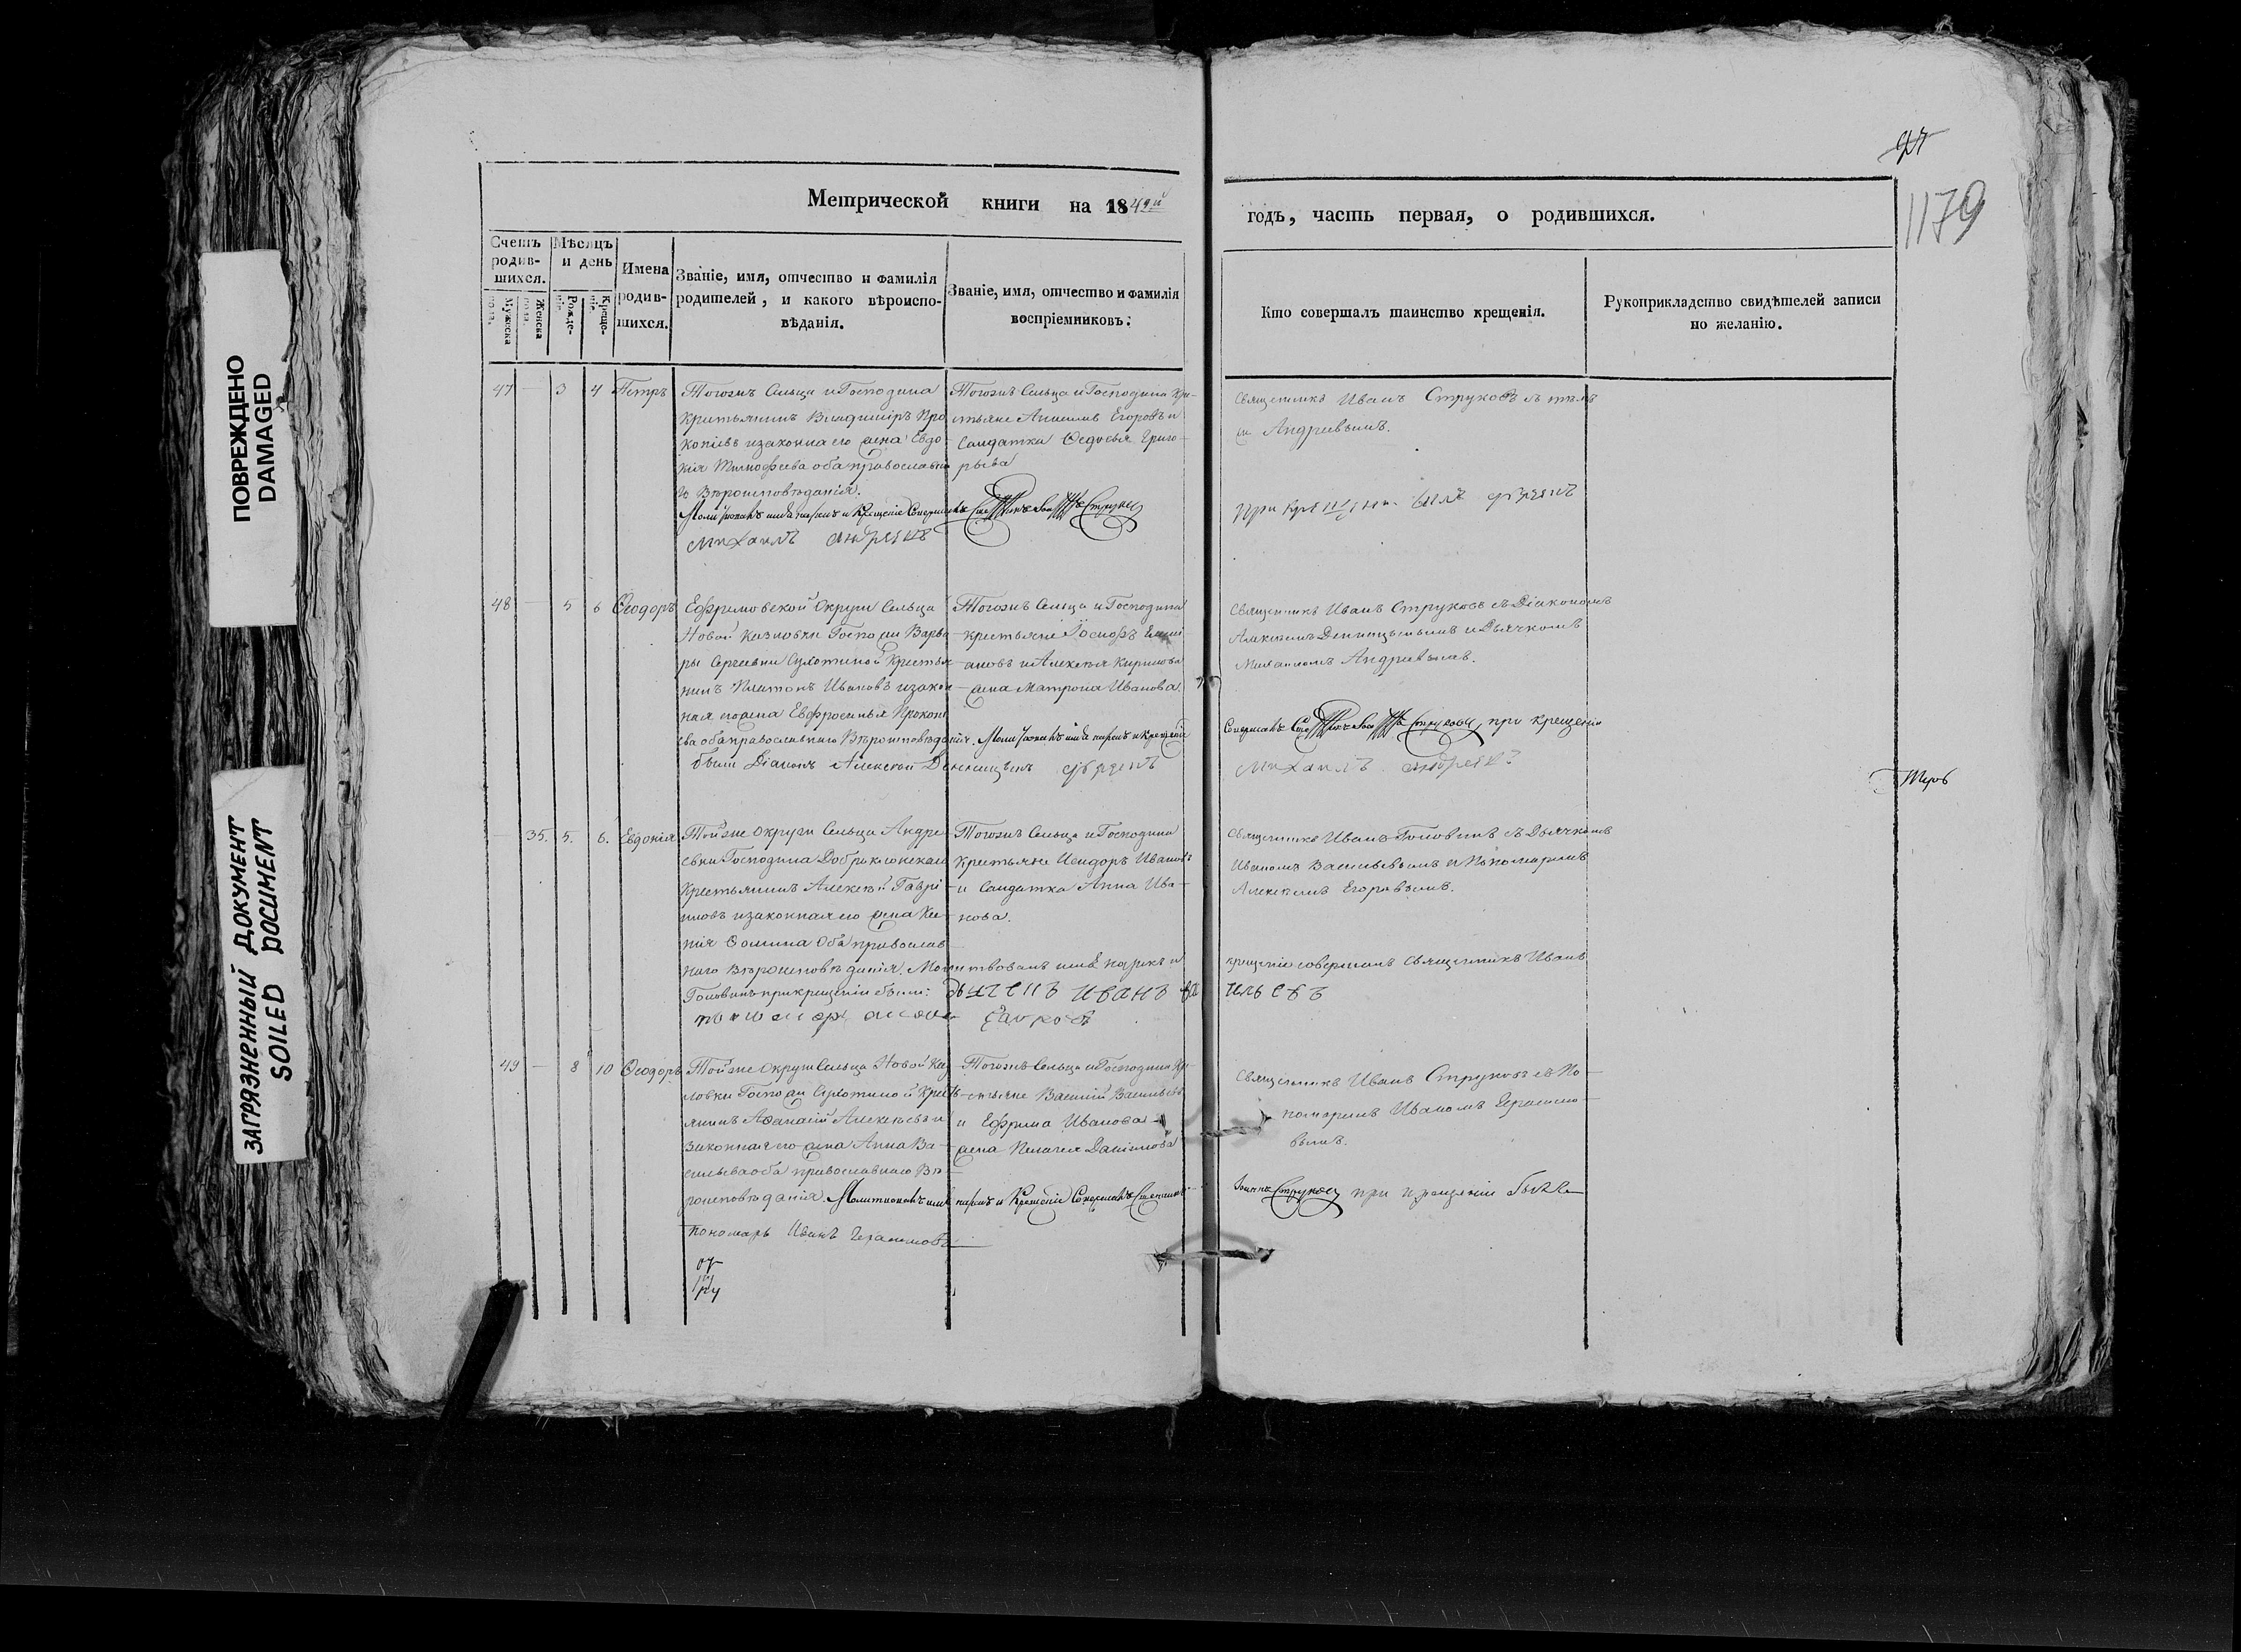 97
1179
Метрической книги на 1849й
годъ, часть первая, о родившихся.
Счетъ родив-шихся.
Мужеска пола.
Женска пола.
Мѣсяцъ и день
Рожде-нія.
Креще-нія.
Имена родив-шихся.
Званіе, имя, отчество и фамилія
родителей, и какого вѣроиспо-
вѣданія.
Званіе, имя, отчество и фамилія
воспріемниковъ:
Кто совершалъ таинство крещенія.
Рукоприкладство свидѣтелей записи
по желанію.
47 — 3 4 Петръ
Тогожъ Сельца и Господина
Крестьянинъ Владиміръ Про
копіевъ и законна его жена Евдо
кія Тимофеева оба православна
го Вѣроисповѣданія.
Михаилъ Андреевъ
Тогожъ Сельца и Господина Кре-
стьяне Егоровъ и
Салдатка Ѳедосья Григо-
рьева
Священникъ Иванъ Струковъ съ
Андреевымъ.
при крещеніи былъ дьячекъ
48 — 5 6 Ѳеодоръ
Ефремовской Округи Сельца
Новой Козловки Госпожи Варва
ры Сергеевны Сухотиной Крестья
нинъ Платонъ Ивановъ и закон
ная его жена Евфросинья Прокопі
ева оба православнаго Вѣроисповѣданія. Молитвовалъ имя нарекъ и крещеніе
были Діаконъ Алексѣй дьячекъ
Тогожъ Сельца и Господина
крестьяне Іосифъ Емелі
ановъ и Алексѣя Кирилова
жена Матрона Иванова.
Священникъ Иванъ Струковъ съ Діакономъ
Алексѣемъ и Дьячкомъ
Михаиломъ Андреевымъ.
Совершалъ Священникъ Іоаннъ Струковъ, при крещеніи
Михаилъ Андреевъ
— 35. 5. 6. Евдокія
Тойже Округи Сельца Андре
евки Господина Доброклонскаго
Крестьянинъ Алексѣй Гаврі-
иловъ и законная его жена Ксе-
нія Ѳомина Оба православ-
наго Вѣроисповѣданія. Молитвовалъ имя нарекъ и
Головинъ при крещеніи были: дьячекъ Иванъ Ва
Тогожъ Сельца и Господина
Крестьяне Исидоръ Ивановъ
и Салдатка Анна Ива-
нова.
Священникъ Иванъ Головинъ съ Дьячкомъ
Иваномъ Васильевымъ и Пономаремъ
Алексѣемъ Егоровымъ.
крещеніе совершалъ Священникъ Иванъ
сильевъ
49 — 8 10 Ѳеодоръ
Тойже Округи Сельца Новой Коз
ловки Госпожи Сухотиной Кресть
янинъ Аѳанасій Алексѣевъ и
Законная его жена Анна Ва-
сильева оба православнаго Вѣ-
роисповѣданія. Молитвовалъ имя нарекъ и Крещеніе Совершалъ Священникъ
пономарь Иванъ Герасимовъ
Тогожъ Сельца и Господина Кре-
стьяне Василій Васильевъ
и Ефрема Иванова
жена Пелагея Даниілова
Священникъ Иванъ Струковъ съ По-
номаремъ Иваномъ Герасимо-
вымъ.
Іоаннъ Струковъ при крещеніи былъ
ПОВРЕЖДЕНО
DAMAGED
ЗАГРЯЗНЕННЫЙ ДОКУМЕНТ
SOILED DOCUMENT